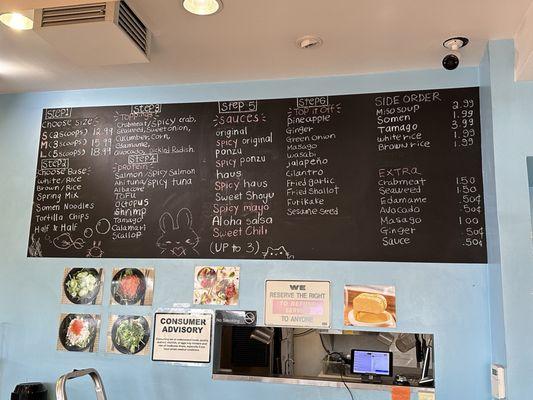 STEP1
Choose Size
S (2 scoops) 12.99
M (3 scoops) 15.99
L (5 scoops) 18.99
STEP2
Choose Base
White/Rice
Brown/Rice
Spring Mix
Somen Noodles
Tortilla Chips
Half & Half
STEP3
TOPPINGS
Crabmeat/Spicy crab,
Seaweed, Sweet onion,
Cucumber, Corn,
Edamame,
Avocado, Pickled Radish
STEP4
PROTEIN
Salmon/Spicy Salmon
Ahi tuna/spicy tuna
Albacore
TOFU
Octopus
Shrimp
Tamago
Calamari
Scallop
STEP 5
sauces
original
spicy original
ponzu
spicy ponzu
haus
Spicy haus
Sweet Shoyu
Spicy mayo
Aloha salsa
Sweet Chili
(UP to 3)
STEP6
TOP it OFF
pineapple
Ginger
Green onion
Masago
wasabi
jalapeño
Cilantro
Fried garlic
Fried Shallot
Furikake
Sesame Seed
SIDE ORDER
Miso soup 2.99
Somen 1.99
Tamago 3.99
white rice 1.99
Brown rice 1.99
EXTRA
Crabmeat 1.50
Seaweed 1.50
Edamame .50¢
Avocado .50¢
Masago 1.00
Ginger .50¢
Sauce .50¢
CONSUMER
ADVISORY
No Smoking
WE
RESERVE THE RIGHT
TO REFUSE
SERVICE
TO ANYONE